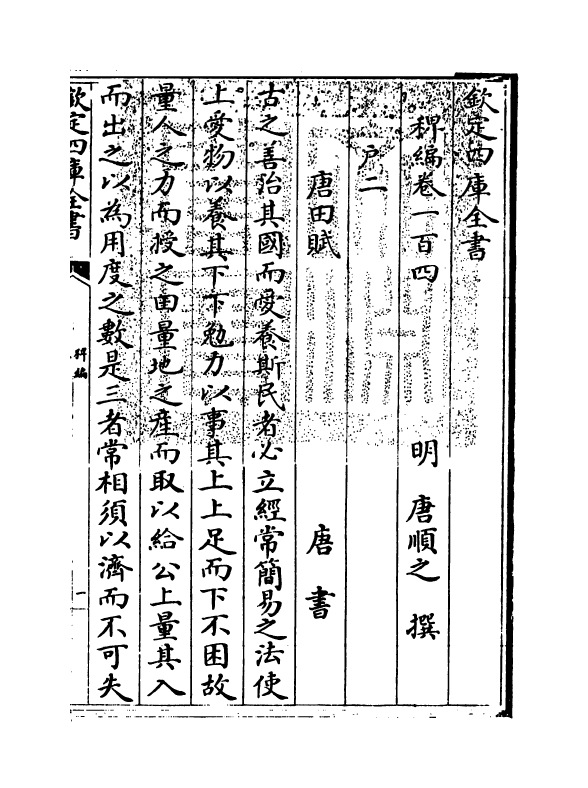 欽定四庫全書
稗編卷一百四　明　唐順之　撰
戶二
唐田賦　唐書
古之善治其國而愛養斯民者必立經常簡易之法使
上愛物以養其下下勉力以事其上上足而下不困故
量人之力而授之田量地之產而取以給公上量其入
而出之以為用度之數是三者常相須以濟而不可失
欽定四庫全書
稗編
一